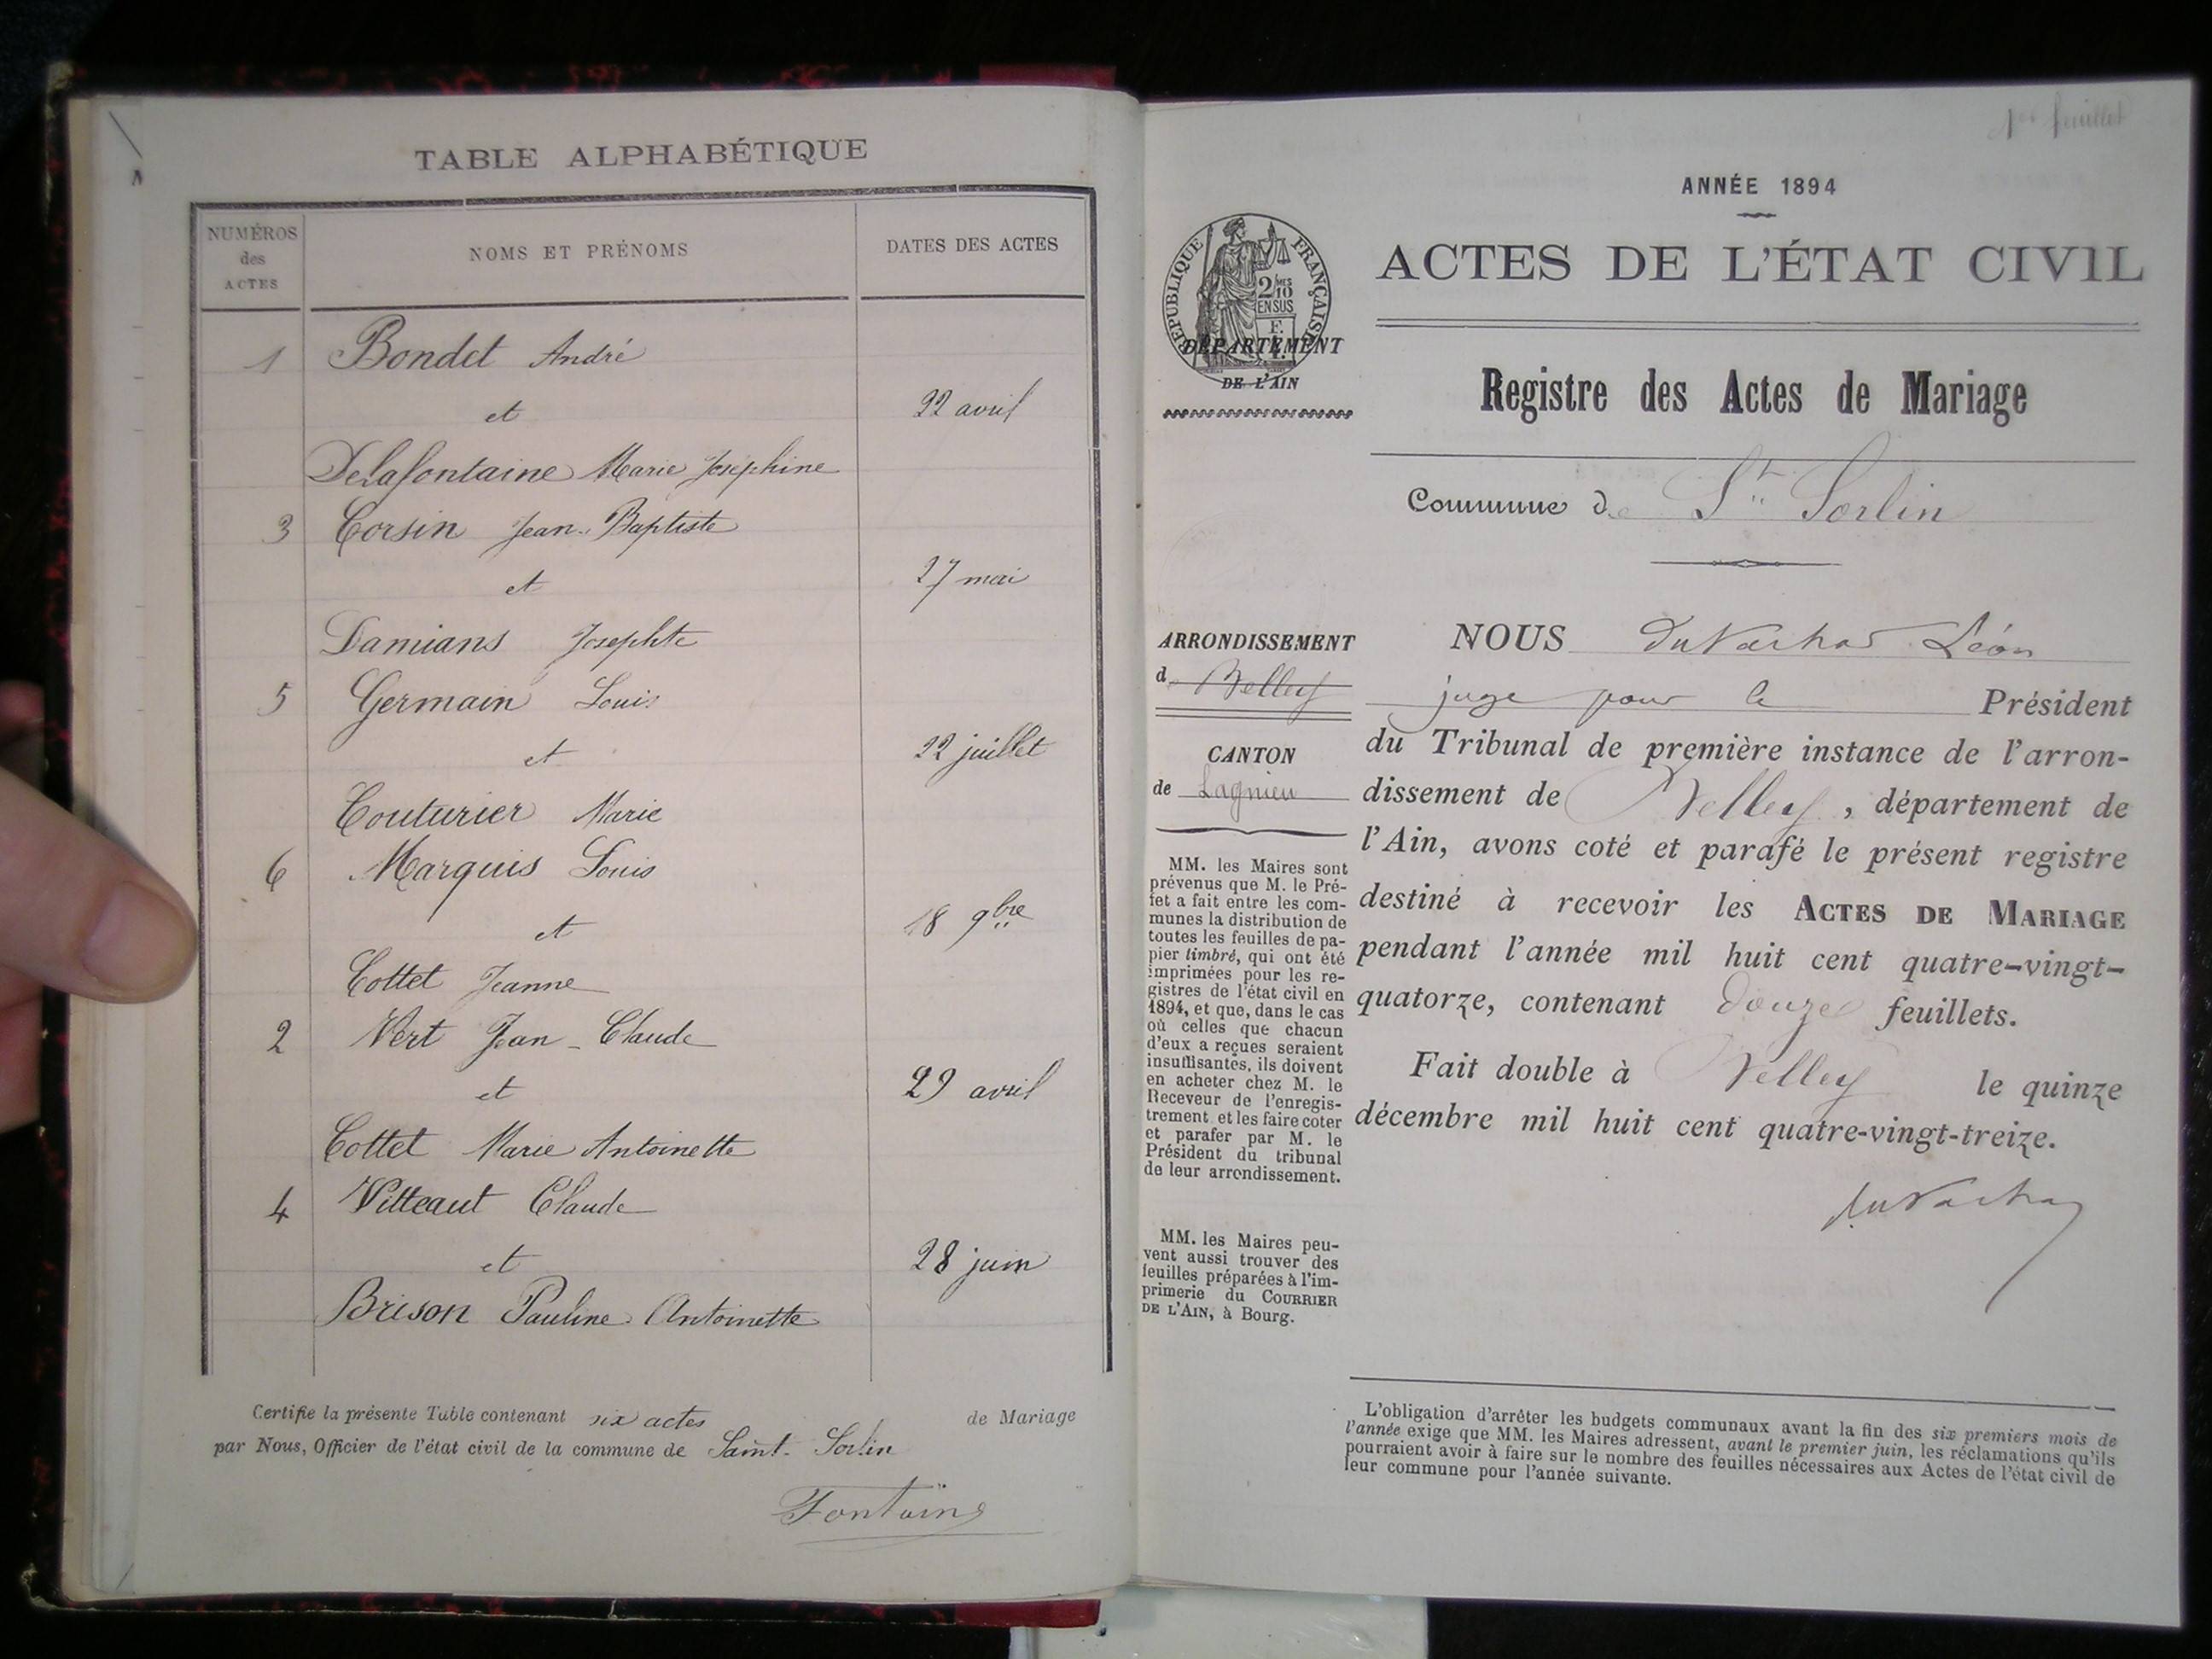 TABLE ALPHABÉTIQUE
NUMÉROS
des
ACTES
NOMS ET PRÉNOMS
DATES DES ACTES
1 Bondet André
et
22 avril
Delafontaine Marie Joséphine
3 Corsin Jean-Baptiste
et
27 mai
Damians Josephte
5 Germain Louis
et
22 juillet
Couturier Marie
6 Marquis Louis
et
18 9bre
Cottet Jeanne
2 Vert Jean-Claude
et
29 avril
Cottet Marie Antoinette
4 Vitteaut Claude
et
28 juin
Brison Pauline Antoinette
Certifie la présente Table contenant six actes de Mariage
par Nous, Officier de l'état civil de la commune de Saint-Sorlin
Fontaine
1er feuillet
ANNÉE 1894
ACTES DE L'ÉTAT CIVIL
RÉPUBLIQUE FRANÇAISE
2/10MES
EN SUS
DÉPARTEMENT
DE L'AIN
Registre des Actes de Mariage
Commune de St Sorlin
ARRONDISSEMENT
de Belley
CANTON
de Lagnieu
MM. les Maires sont
prévenus que M. le Pré-
fet a fait entre les com-
munes la distribution de
toutes les feuilles de pa-
pier timbré, qui ont été
imprimées pour les re-
gistres de l'état civil en
1894, et que, dans le cas
où celles que chacun
d'eux a reçues seraient
insuffisantes, ils doivent
en acheter chez M. le
Receveur de l'enregis-
trement et les faire coter
et parafer par M. le
Président du tribunal
de leur arrondissement.
MM. les Maires peu-
vent aussi trouver des
feuilles préparées à l'im-
primerie du COURRIER
DE L'AIN, à Bourg.
NOUS Léon
juge pour le Président
du Tribunal de première instance de l'arron-
dissement de Belley, département de
l'Ain, avons coté et parafé le présent registre
destiné à recevoir les ACTES DE MARIAGE
pendant l'année mil huit cent quatre-vingt-
quatorze, contenant douze feuillets.
Fait double à Belley le quinze
décembre mil huit cent quatre-vingt-treize.
L'obligation d'arrêter les budgets communaux avant la fin des six premiers mois de
l'année exige que MM. les Maires adressent, avant le premier juin, les réclamations qu'ils
pourraient avoir à faire sur le nombre des feuilles nécessaires aux Actes de l'état civil de
leur commune pour l'année suivante.